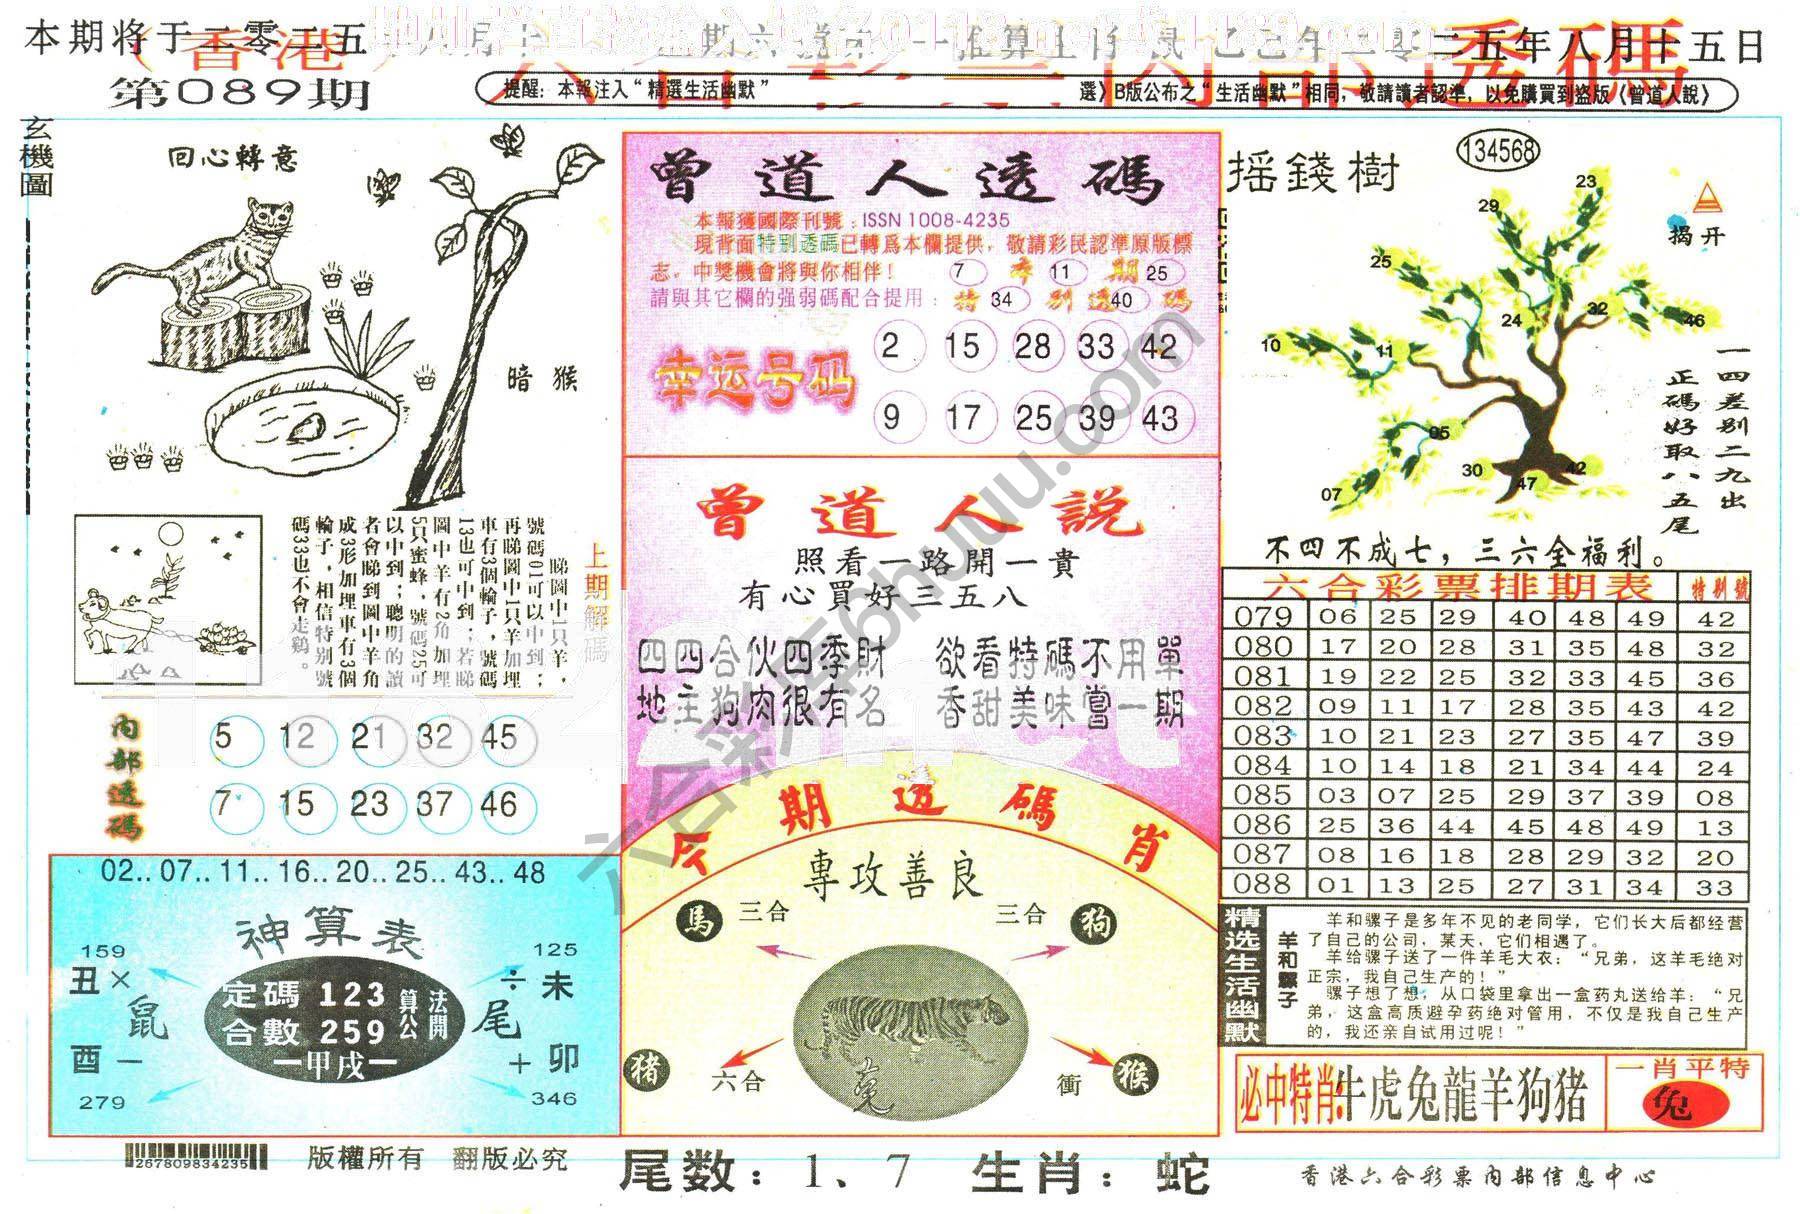 第089期
提醒：本報注入“精選生活幽默”
選》B版公布之“生活幽默”相同，敬請讀者認準，以免購買到盗版《曾道人說》
玄機圖
回心轉意
暗 猴
上期解碼
睇圖中1只羊，
號碼01可以中到；
再睇圖中1只羊加埋
車有3個輪子，號碼
13也可中到；若睇
圖中羊有2角加埋
5只蜜蜂，號碼25可
以中到；聰明的讀
者會睇到圖中羊角
成3形加埋車有3個
輪子，相信特别號
碼33也不會走鷄。
內部透碼
5 12 21 32 45
7 15 23 37 46
02..07..11..16..20..25..43..48
神算表
159
125
丑 × 鼠
÷ 未
定碼 123
合數 259
算公
法開
一甲戌一
尾
酉 一
+ 卯
279
346
267809834235
版權所有 翻版必究
曾道人透碼
本報獲國際刊號：ISSN 1008-4235
現背面特别透碼已轉爲本欄提供，敬請彩民認準原版標
志。中獎機會將與你相伴！
7 本 11 期 25
請與其它欄的强弱碼配合提用：
特 34 别透 40 碼
幸运号码
2 15 28 33 42
9 17 25 39 43
曾道人説
照看一路開一貴
有心買好三五八
四四合伙四季財 欲看特碼不用單
地主狗肉很有名 香甜美味當一期
今期透碼肖
專攻善良
馬 三合 三合 狗
猪 六合 衝 猴
尾数：1、7 生肖：蛇
摇錢樹
134568
揭开
23
29
25
24
32
46
10
11
05
30
42
47
07
一四差别二九出
正碼好取八五尾
不四不成七，三六全福利。
六合彩票排期表 特别號
079 06 25 29 40 48 49 42
080 17 20 28 31 35 48 32
081 19 22 25 32 33 45 36
082 09 11 17 28 35 43 42
083 10 21 23 27 35 47 39
084 10 14 18 21 34 44 24
085 03 07 25 29 37 39 08
086 25 36 44 45 48 49 13
087 08 16 18 28 29 32 20
088 01 13 25 27 31 34 33
精选生活幽默
羊和骡子
羊和骡子是多年不见的老同学，它们长大后都经营
了自己的公司，某天，它们相遇了。
羊给骡子送了一件羊毛大衣：“兄弟，这羊毛绝对
正宗，我自己生产的！”
骡子想了想，从口袋里拿出一盒药丸送给羊：“兄
弟，这盒高质避孕药绝对管用，不仅是我自己生产
的，我还亲自试用过呢！”
必中特肖:牛虎兔龍羊狗猪
一肖平特
兔
香港六合彩票内部信息中心
六合彩库6huuu.com